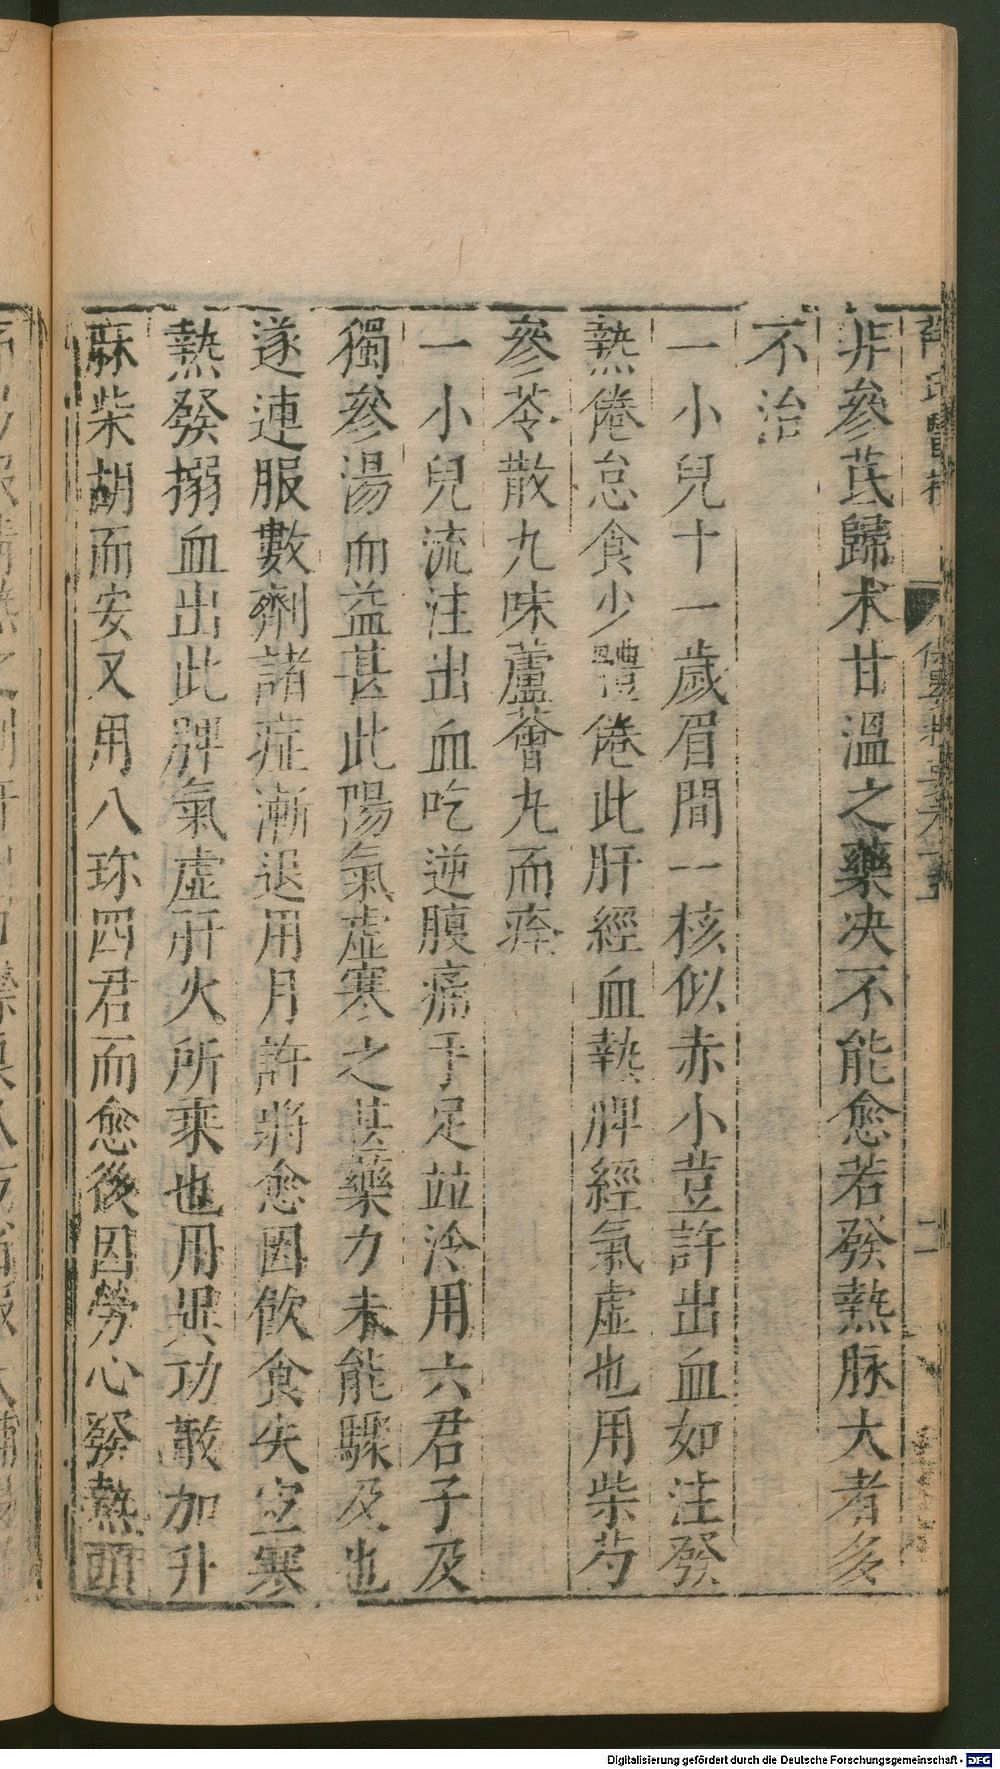 非參芪歸术甘溫之藥决不能愈若發熱脉大者多
不治
一小兒十一歲眉間一核似赤小荳許出血如注發
熱倦怠食少體倦此肝經血熱脾經氣虛也用柴芍
參苓散九味蘆薈丸而痊
一小兒流注出血吃逆腹痛手足竝冷用六君子及
獨參湯而益甚此陽氣虛寒之甚藥力未能驟及也
遂連服數劑諸症漸退用月許將愈因飲食失宜寒
熱發搦血出此脾氣虛肝火所乘也用異功散加升
麻柴胡而安又用八珍四君而愈後因勞心發熱頭
二
Digitalisierung gefördert durch die Deutsche Forschungsgemeinschaft - DFG